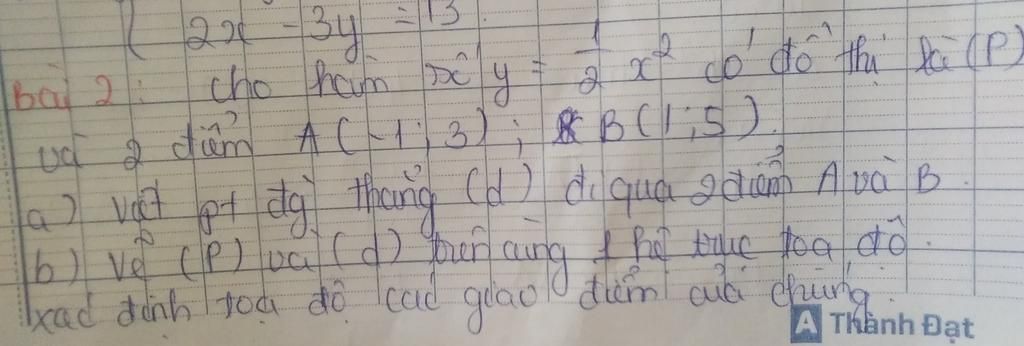 2x - 3y = 13.
Bài 2: cho hàm số y = 1/2 x² có đồ thị là (P)
và 2 điểm A(-1; 3); B(1; 5).
a) viết pt đg thẳng (d) đi qua 2 điểm A và B.
b) vẽ (P) và (d) trên cùng 1 hệ trục toạ độ.
xác định toạ độ các giao điểm của chúng.
A Thành Đạt